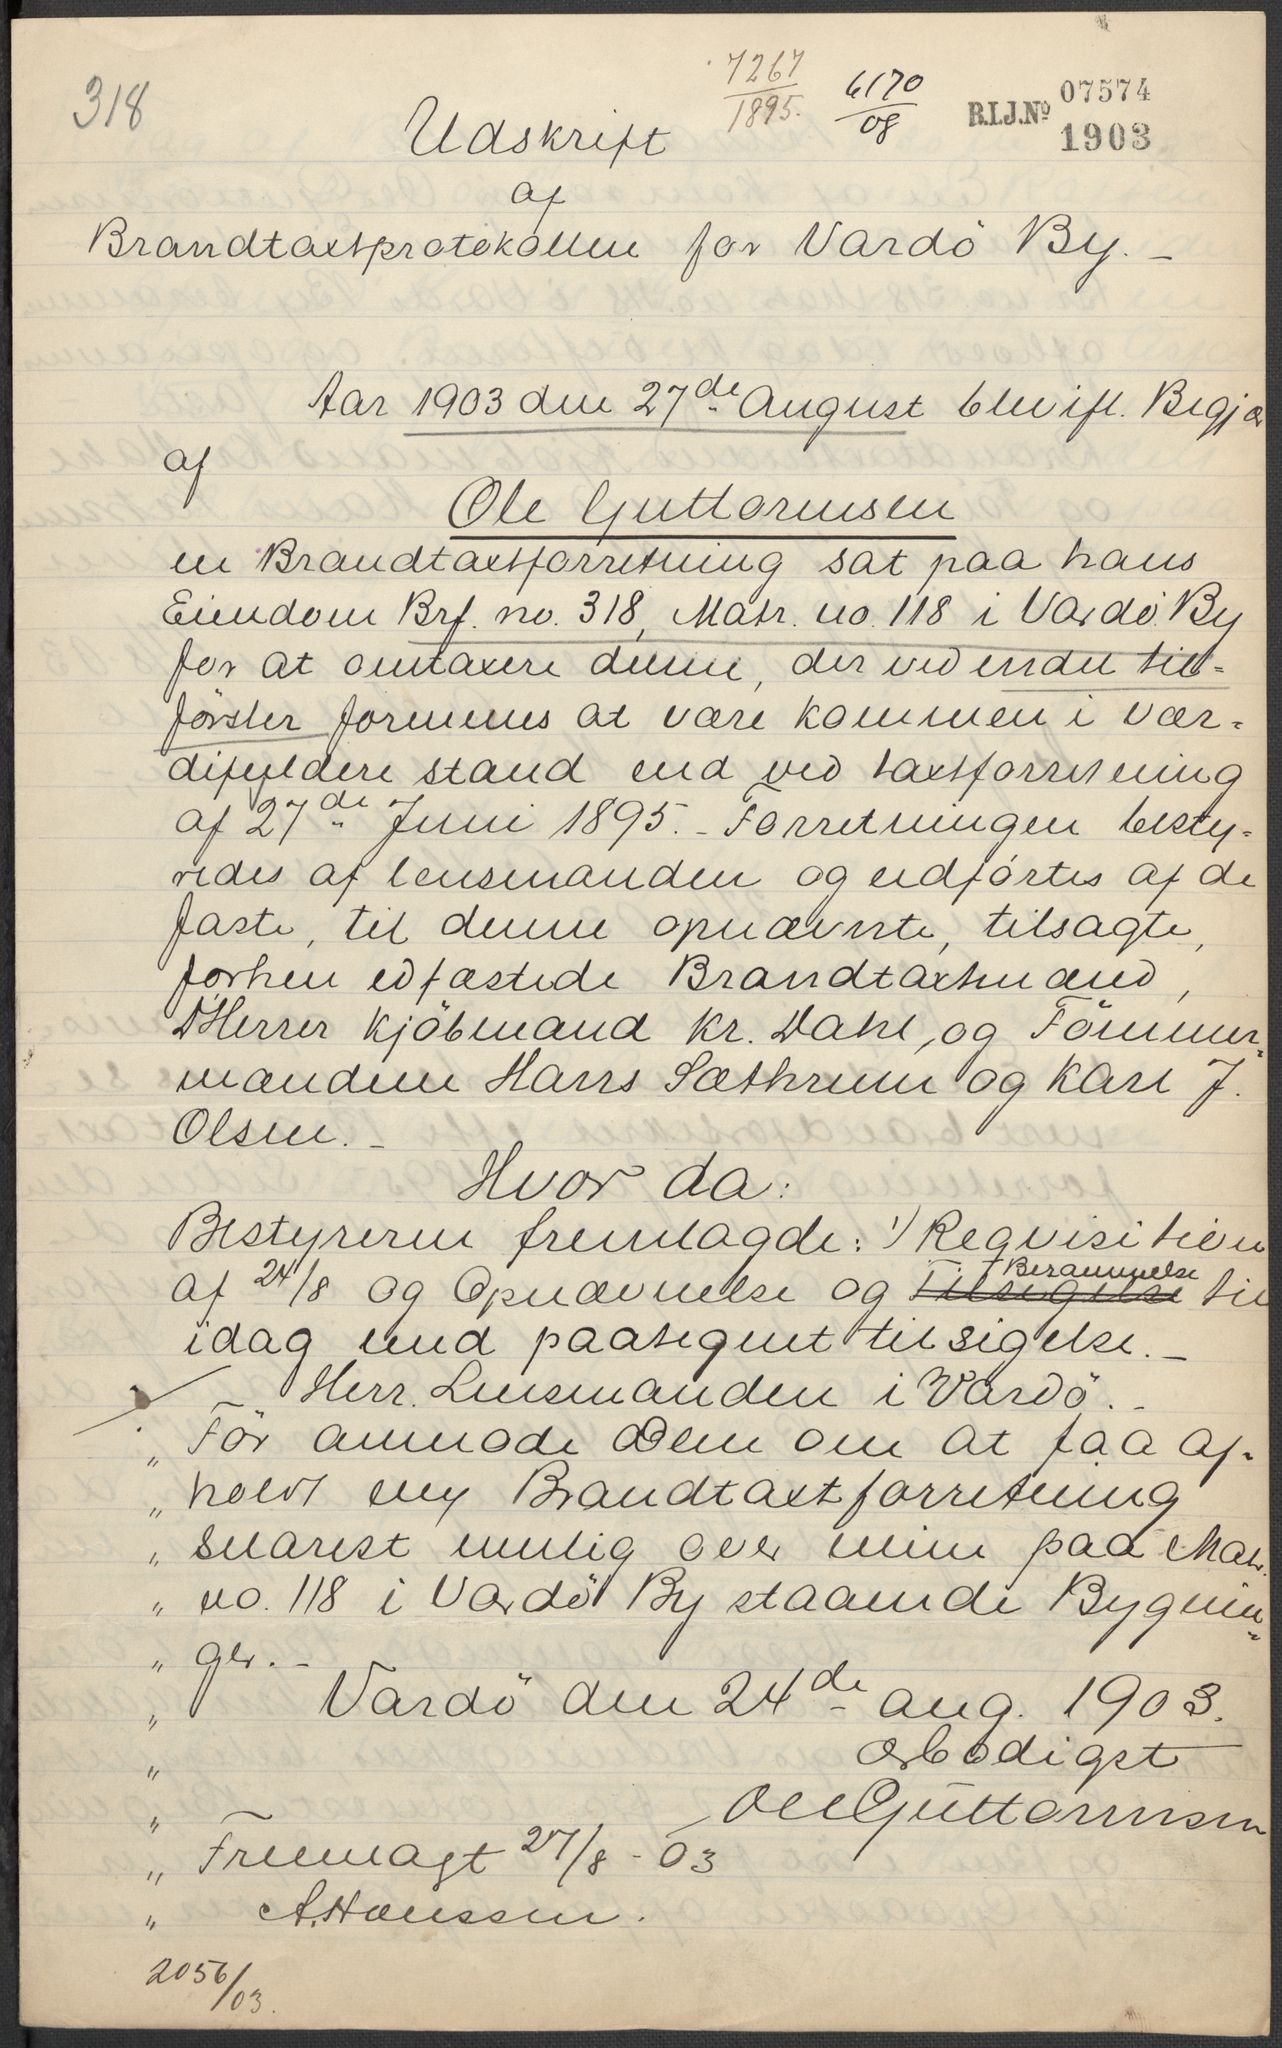 318
7267
1895.
6170
08
B.I.J.No 07574
1903
Udskrift
af
Brandtaxtprotokollen for Vardö By. -
Aar 1903 den 27de August blev ifl. Begjær
af
Ole Guttormsen
en Brandtaxtforretning sat paa hans
Eiendom Brf. no. 318, Matr. no. 118 i Vardö By
for at omtaxere denne, der ved endel til=
förster formenes at være kommen i vær=
difyldere stand end ved taxtforretning
af 27de Juni 1895. - Forretningen besty=
redes af lensmanden og udförtes af de
faste, til denne opnævnte, tilsagte,
forhen edfæstede Brandtaxtmænd,
DHerrer Kjöbmand Kr. Dahl, og Tömmer=
mændene Hans Sæthrum og Karl J.
Olsen. -
Hvor da:
Bestyreren fremlagde: 1) Reqvisition
af 24/8 og Opnævnelse og Tilsigelse Berammelse til
idag med paategnet tilsigelse. -
Herr. Lensmanden i Vardö. -
„ Tör anmode Dem om at faa af-
„ holdt en ny Brandtaxtforretning
„ snarest mulig over mine paa Matr.
„ no. 118 i Vardö By staaende Bygnin=
„ ger. -
„ Vardö den 24de aug. 1903.
„ ærbödigst
„ Ole Guttormsen
„ Fremlagt 27/8 - 03
„ A. Hanssen.
2056/03.